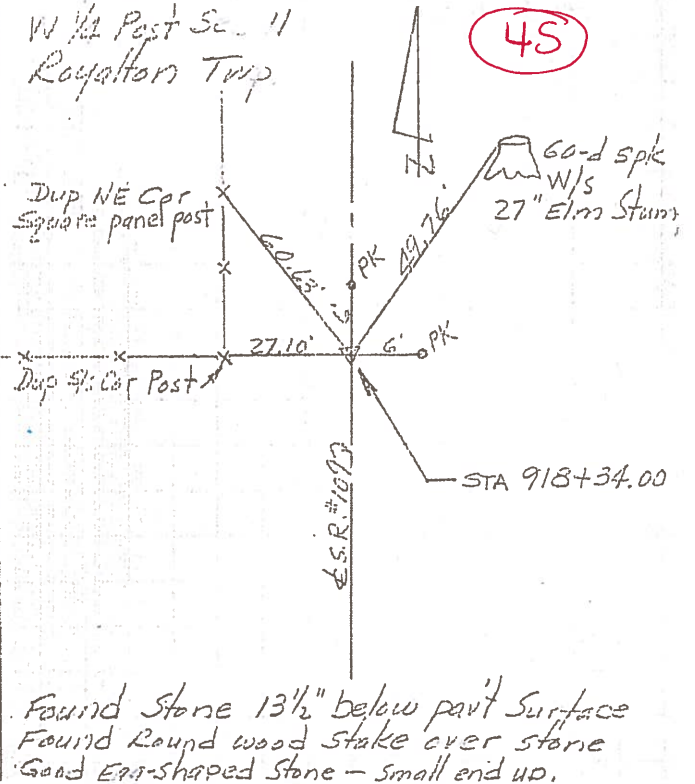 W 1/4 Post Sc. 11
Royalton Twp
45
N
60-d spk
W/s
27" Elm Stum
Dup NE Cor
Square panel post
60.63'
49.76'
PK
6'
27.10'
6'
PK
Dup Cor Post
STA 918+34.00
S.R. #109
Found Stone 13 1/2" below pav't Surface
Found Round wood Stake over stone
Good Egg-shaped Stone - Small end up.